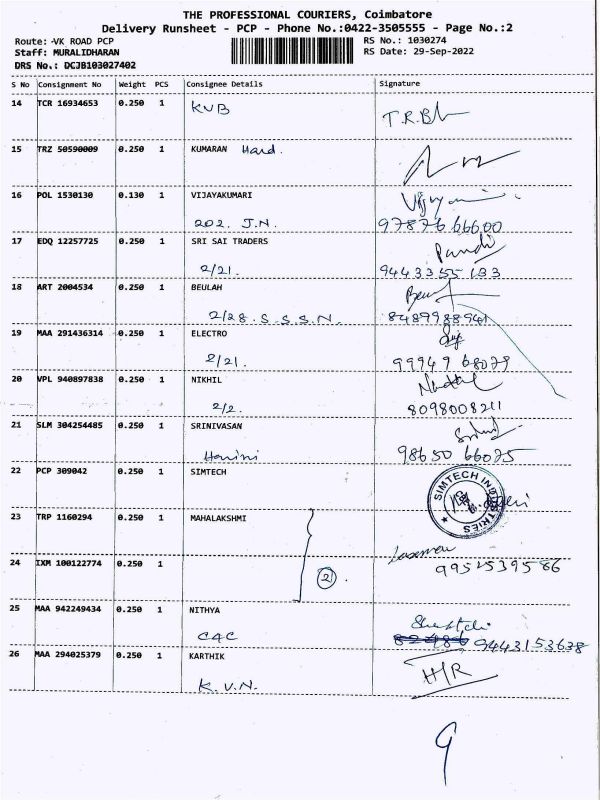 THE PROFESSIONAL COURIERS, Coimbatore
Delivery Runsheet - PCP - Phone No.:0422-3505555 - Page No.:2
Route: -VK ROAD PCP
RS No.: 1030274
Staff: MURALIDHARAN
RS Date: 29-Sep-2022
DRS No.: DCJB103027402
S No Consignment No Weight PCS Consignee Details Signature
14 TCR 16934653 0.250 1 KVB
T.R.B
15 TRZ 50590009 0.250 1 KUMARAN Hand.
16 POL 1530130 0.130 1 VIJAYAKUMARI
202. J.N. 97876 66600
17 EDQ 12257725 0.250 1 SRI SAI TRADERS Pandi
2/21. 9443355 133
18 ART 2004534 0.250 1 BEULAH
2/28. S.S.S.N. 8489988941
19 MAA 291436314 0.250 1 ELECTRO
2/21. 99949 68079
20 VPL 940897838 0.250 1 NIKHIL
2/2. 8098008211
21 SLM 304254485 0.250 1 SRINIVASAN
Harini 98650 66075
22 PCP 309042 0.250 1 SIMTECH
SIMTECH INDUSTRIES
23 TRP 1160294 0.250 1 MAHALAKSHMI
24 IXM 100122774 0.250 1
2 9952539586
25 MAA 942249434 0.250 1 NITHYA
CAC 9443153638
26 MAA 294025379 0.250 1 KARTHIK H/R
K.V.N.
9